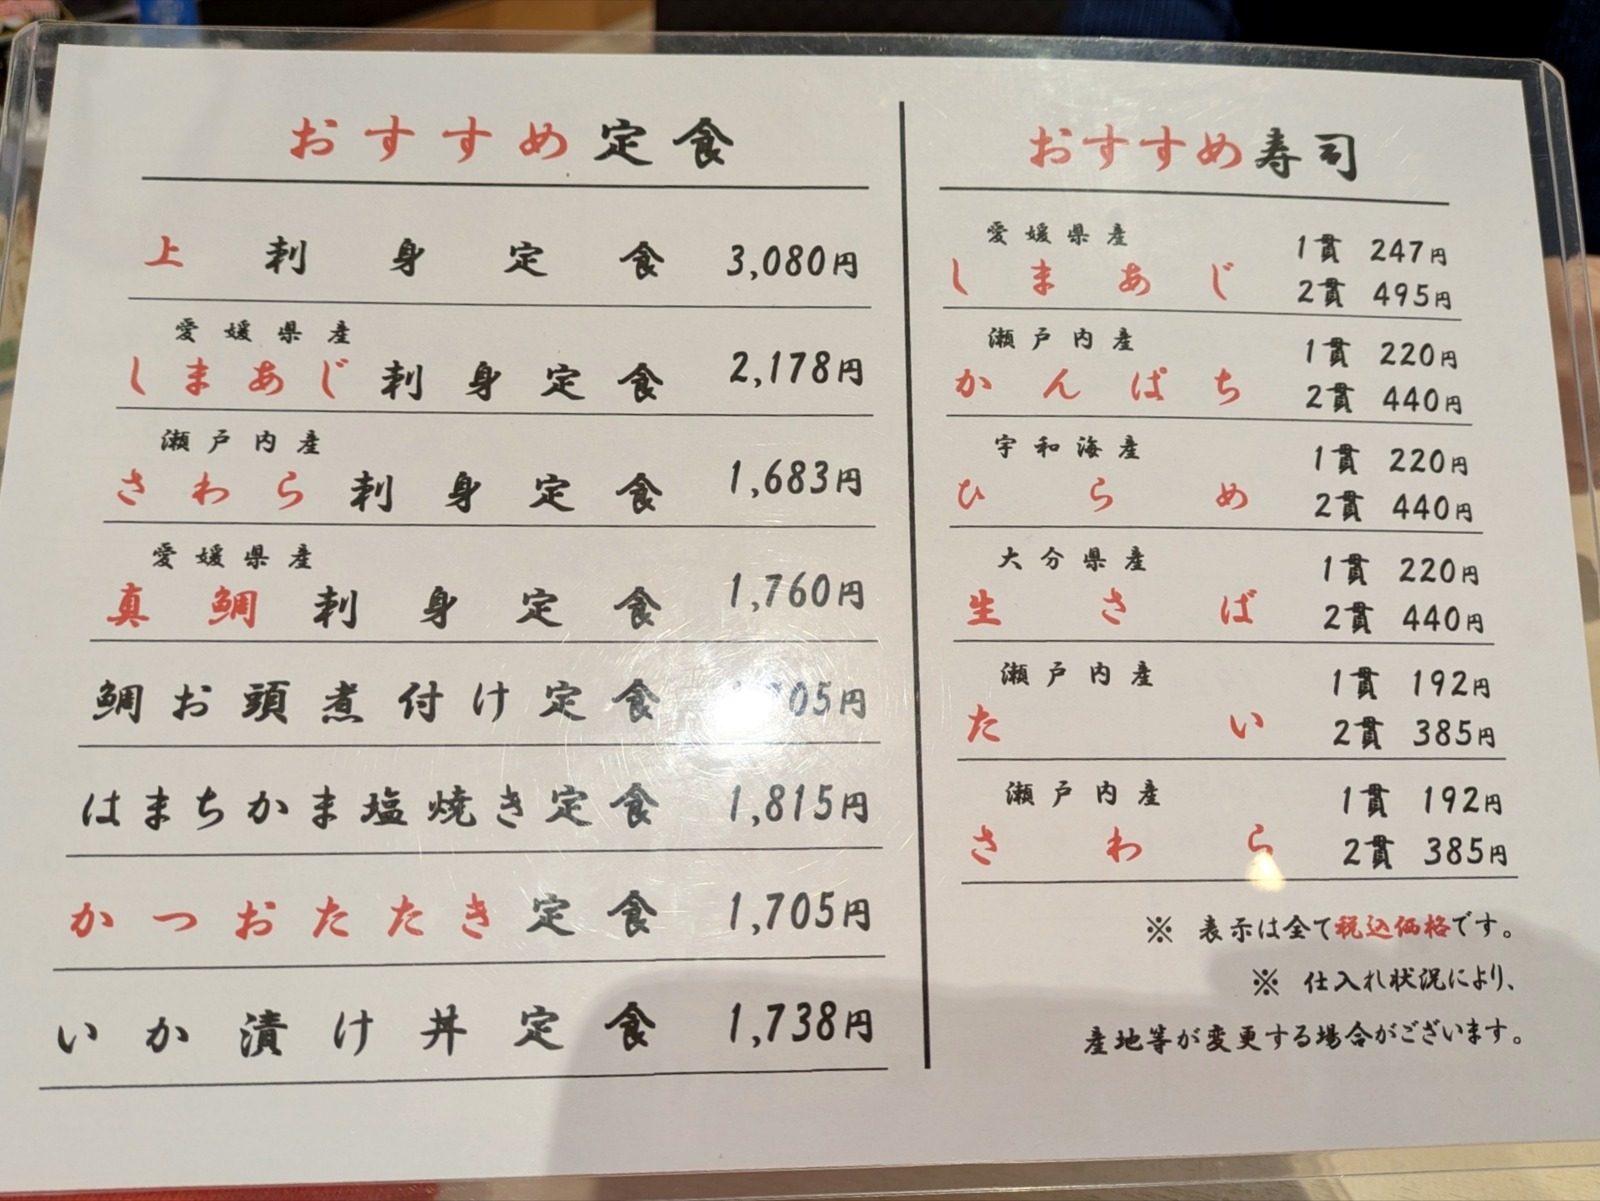 おすすめ定食
上刺身定食 3,080円
愛媛県産
しまあじ刺身定食 2,178円
瀬戸内産
さわら刺身定食 1,683円
愛媛県産
真鯛刺身定食 1,760円
鯛お頭煮付け定食
はまちかま塩焼き定食 1,815円
かつおたたき定食 1,705円
いか漬け丼定食 1,738円
おすすめ寿司
愛媛県産
しまあじ
1貫 247円
2貫 495円
瀬戸内産
かんぱち
1貫 220円
2貫 440円
宇和海産
ひらめ
1貫 220円
2貫 440円
大分県産
生さば
1貫 220円
2貫 440円
瀬戸内産
たい
1貫 192円
2貫 385円
瀬戸内産
さわら
1貫 192円
2貫 385円
※ 表示は全て税込価格です。
※ 仕入れ状況により、
産地等が変更する場合がございます。